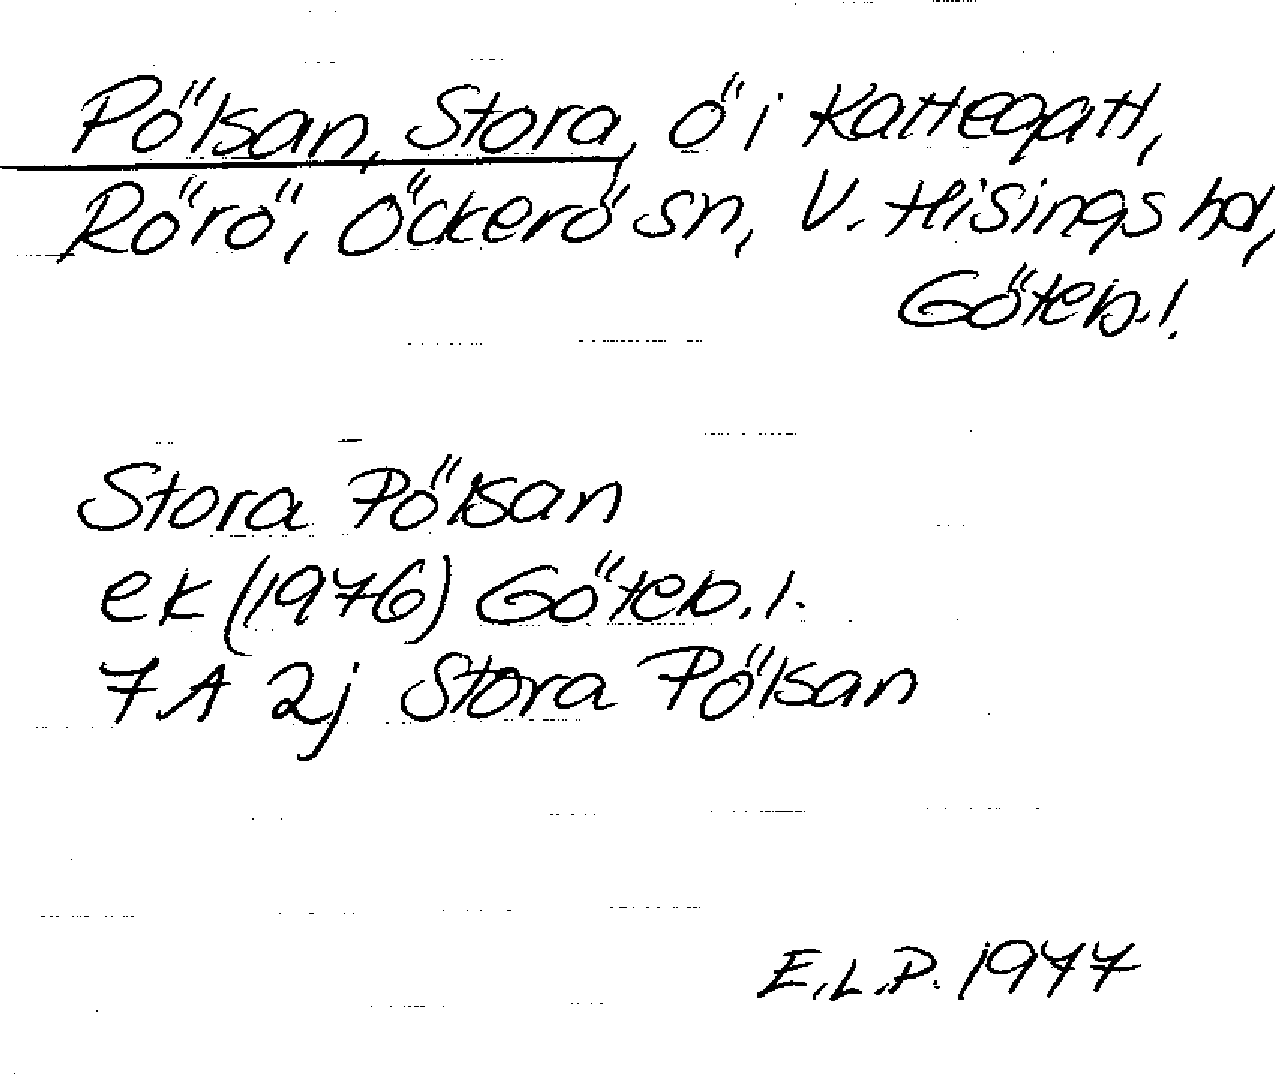 Pölsan, Stora, ö i Kattegatt,
Rörö, Öckerö sn, V. Hisings hd,
Göteb.l.
Stora Pölsan
ek (1976) Göteb.l.
7A 2j Stora Pölsan
E.L.P. 1977